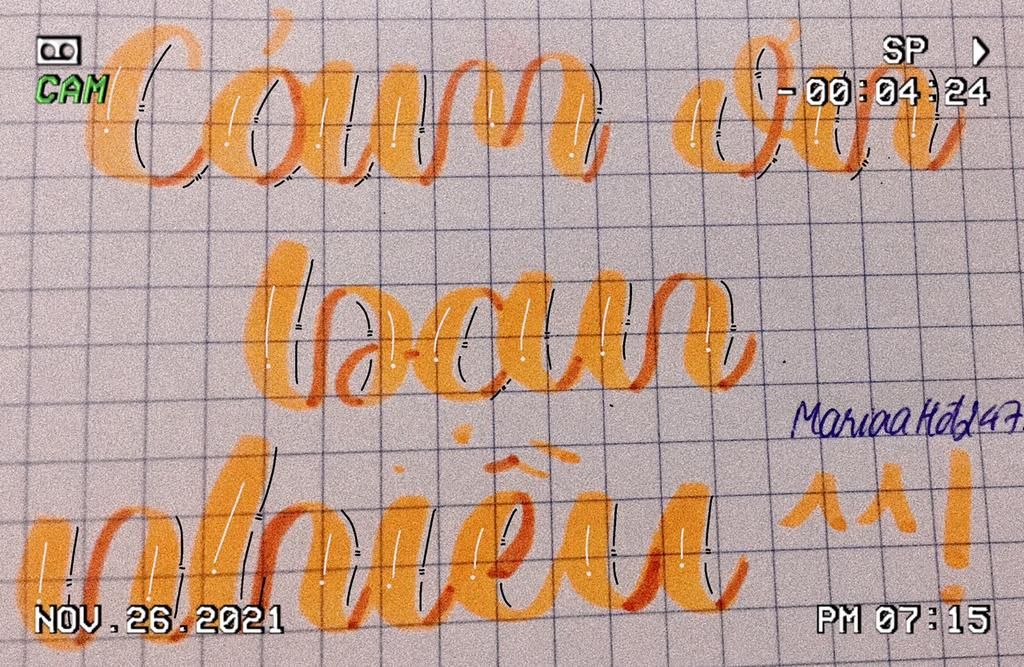 SP
CAM -00:04:24
Cám ơn
bạn
nhiều ^^!
NOV.26.2021 PM 07:15